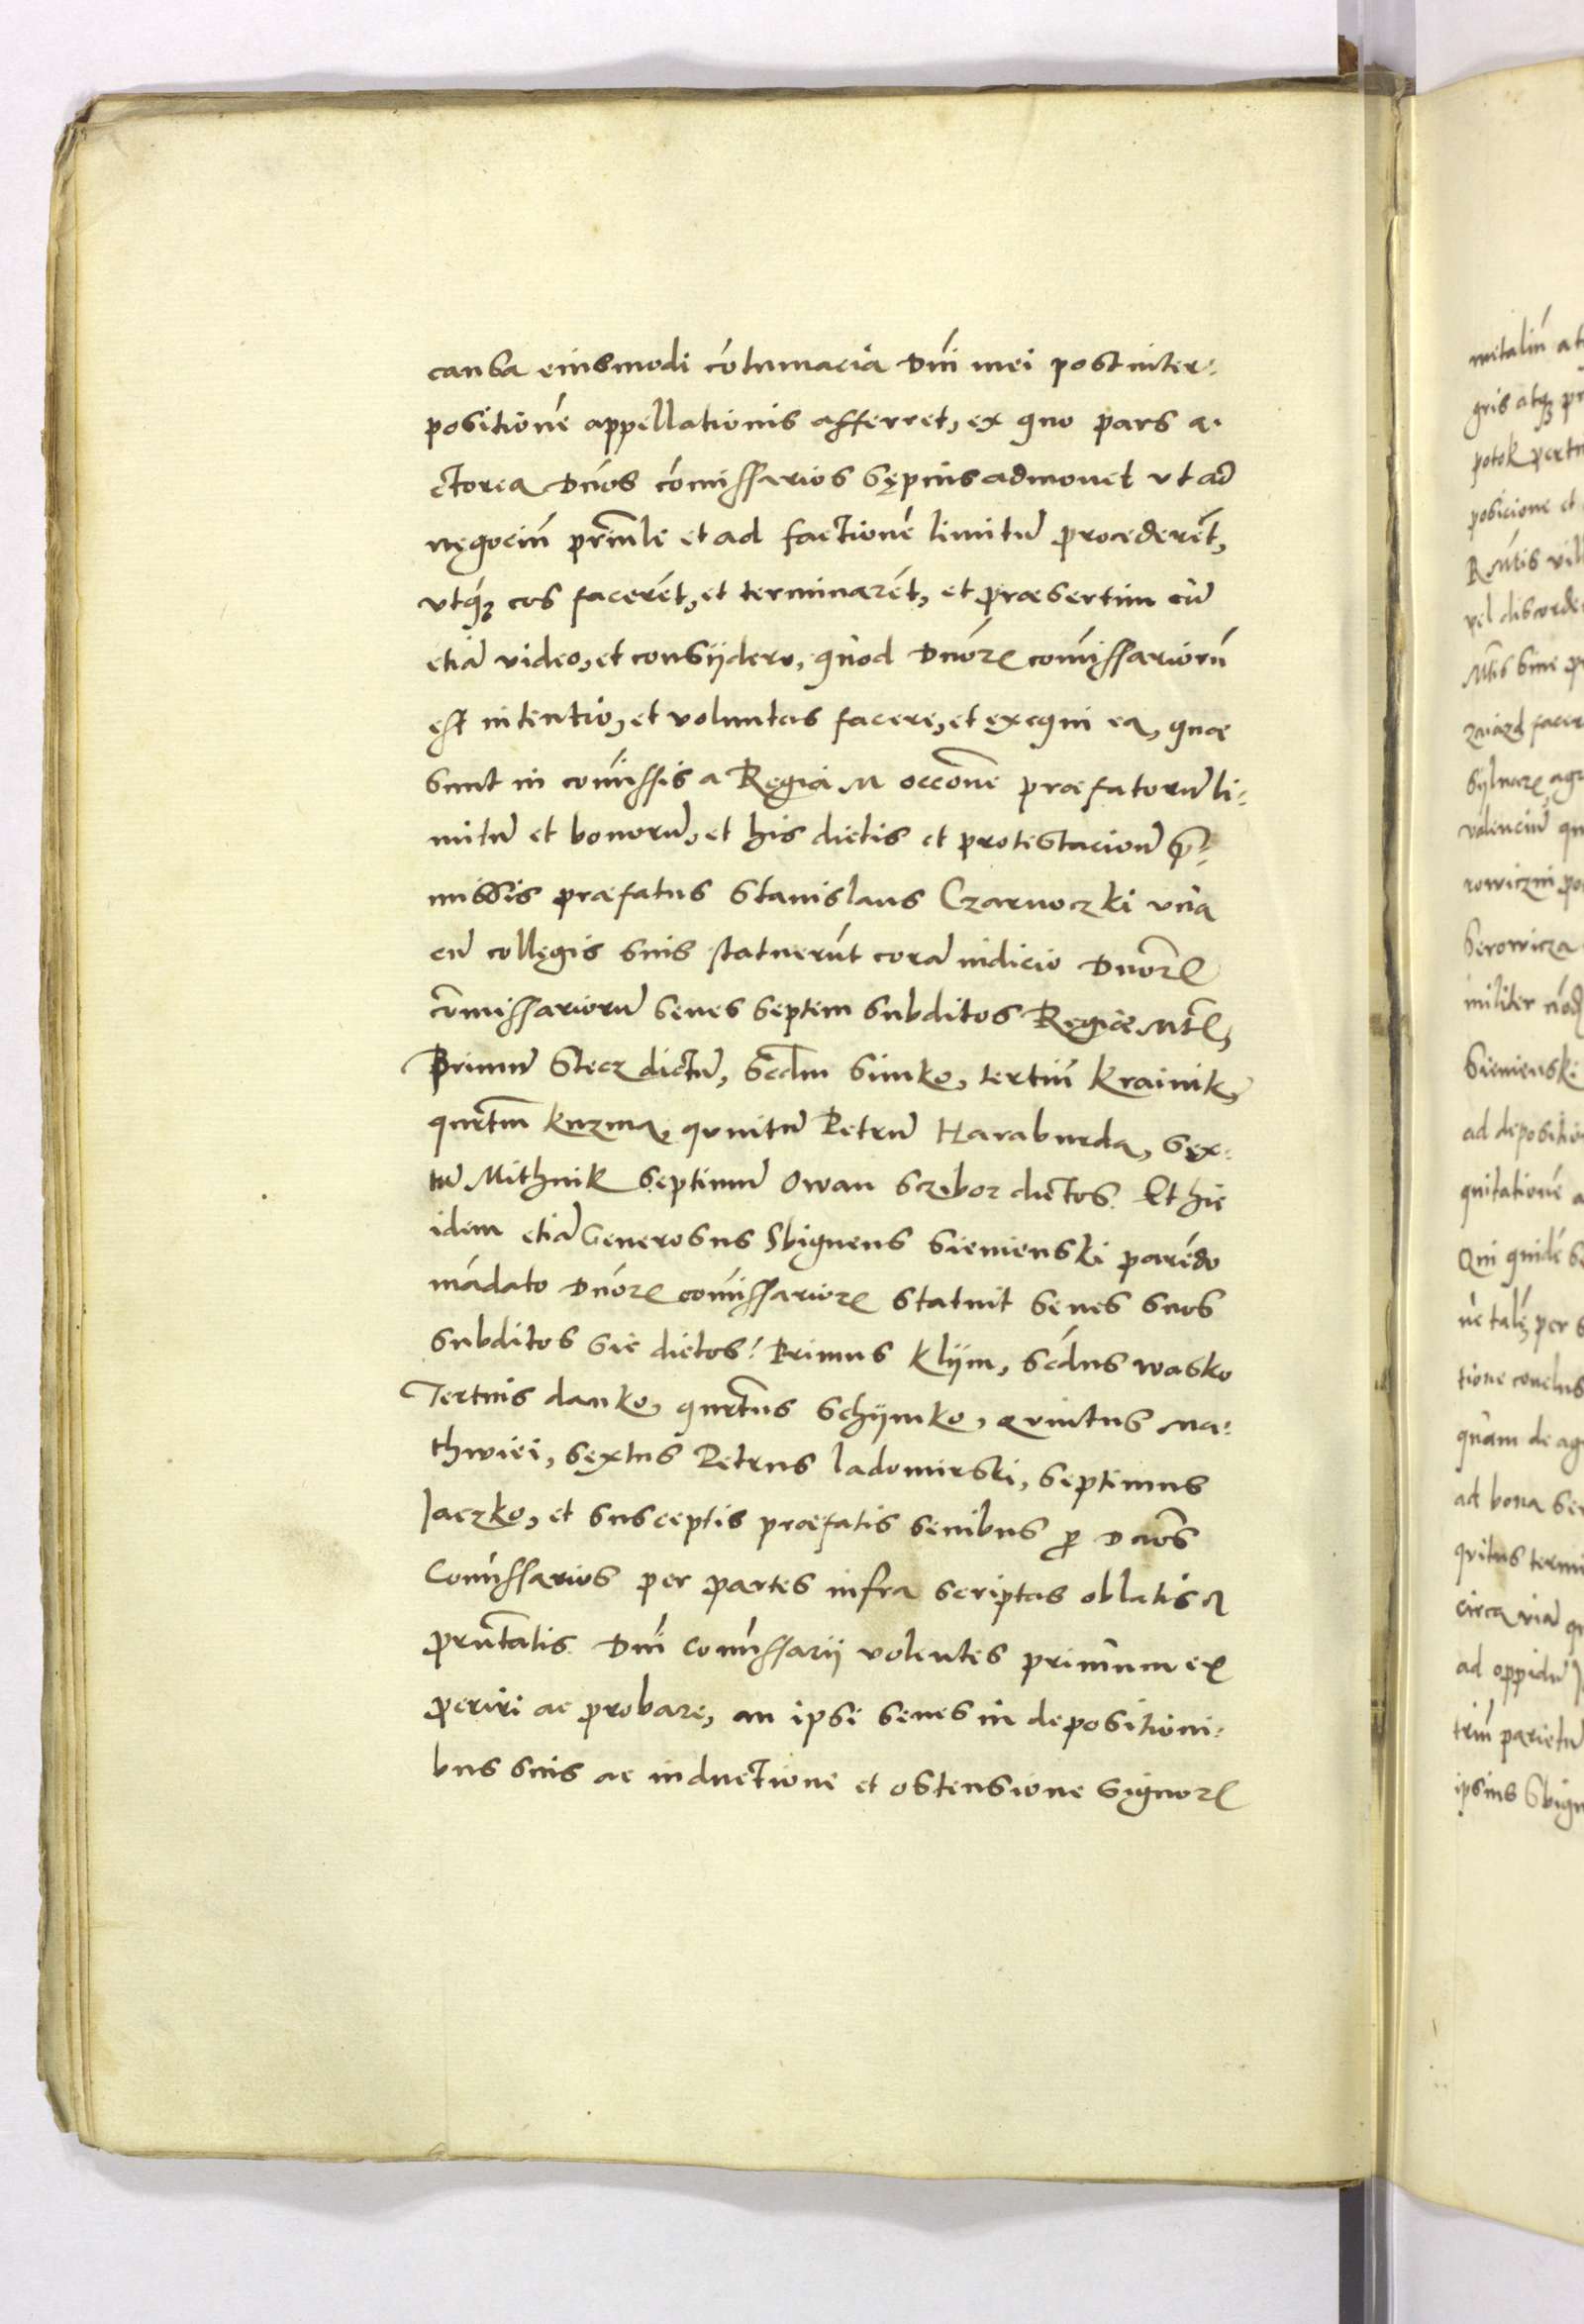 causa eiusmodi cōtumaciā Dńi mei post inter-
positionē appellationis afferret, ex quo pars a-
ctorea Dńos cōmissarios sępius admonet vt ad
nęgociū prīnle et ad factionē limitū procederēt,
vtq́ꝫ eos facerēt, et terminarēt, et præsertim cū
etiā video, et consijdero, quod Dńorꝝ com̄issariorū
est intentio, et voluntas facere, et exequi ea, quæ
sunt in com̄issis a Regia M occōne præfatorū li-
mitū et bonorū, et his dictis et protestacionū p̄-
missis præfatus Stanislaus Czarnoczki vna
cū collęgis suis statuerūt corā iudicio Dnōrꝝ
cōmissariorū senes septem subditos Regiæ Mtꝭ,
Primū Stecz dictū, scd̄m Simko, tertiū Krainik,
quartm̄ Kuzma, quintū Petrū Haraburda, sęx-
tū Mithnik septimū Owan sczibor dictos. Et hic
idem etiā Generosus Sbigneus Sienienski parēdo
mādato Dńorꝝ com̄issariorꝝ statuit senes suos
subditos sic dictos: Primus Klijm, scd́us Wasko
Tertius danko, quartus Schijmko, quintus Ma-
thwiei, sęxtus Petrus ladomirski, septimus
Jaczko, et susceptis præfatis senibus ꝑ Dńos
Com̄issarios per partes infra scriptas oblatis et
prūtatis. Dńi Com̄issarij volentes primum ex
periri ac probare, an ipsi senes in depositioni-
bus suis ac inductione et ostensione signorꝝ